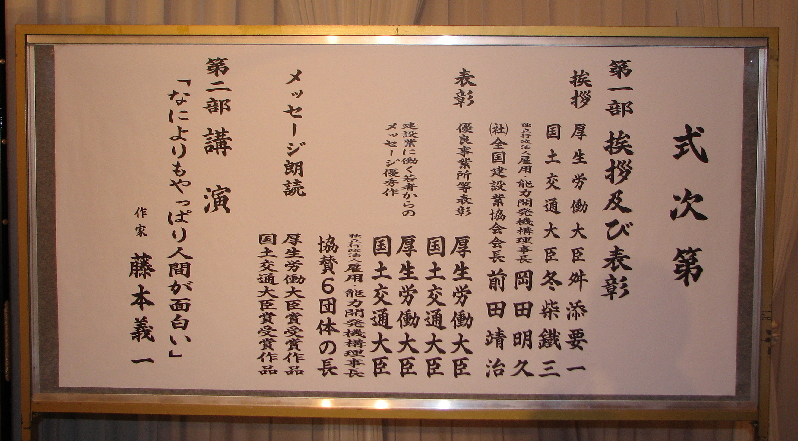 式次第
第一部 挨拶及び表彰
挨拶 厚生労働大臣 舛添要一
国土交通大臣 冬柴鐵三
独立行政法人雇用・能力開発機構理事長 岡田明久
㈳全国建設業協会会長 前田靖治
表彰 優良事業所等表彰 厚生労働大臣
国土交通大臣
建設業に働く若者からの
メッセージ優秀作
厚生労働大臣
国土交通大臣
独立行政法人雇用・能力開発機構理事長
協賛6団体の長
メッセージ朗読 厚生労働大臣賞受賞作品
国土交通大臣賞受賞作品
第二部 講演
「なによりもやっぱり人間が面白い」
作家 藤本義一